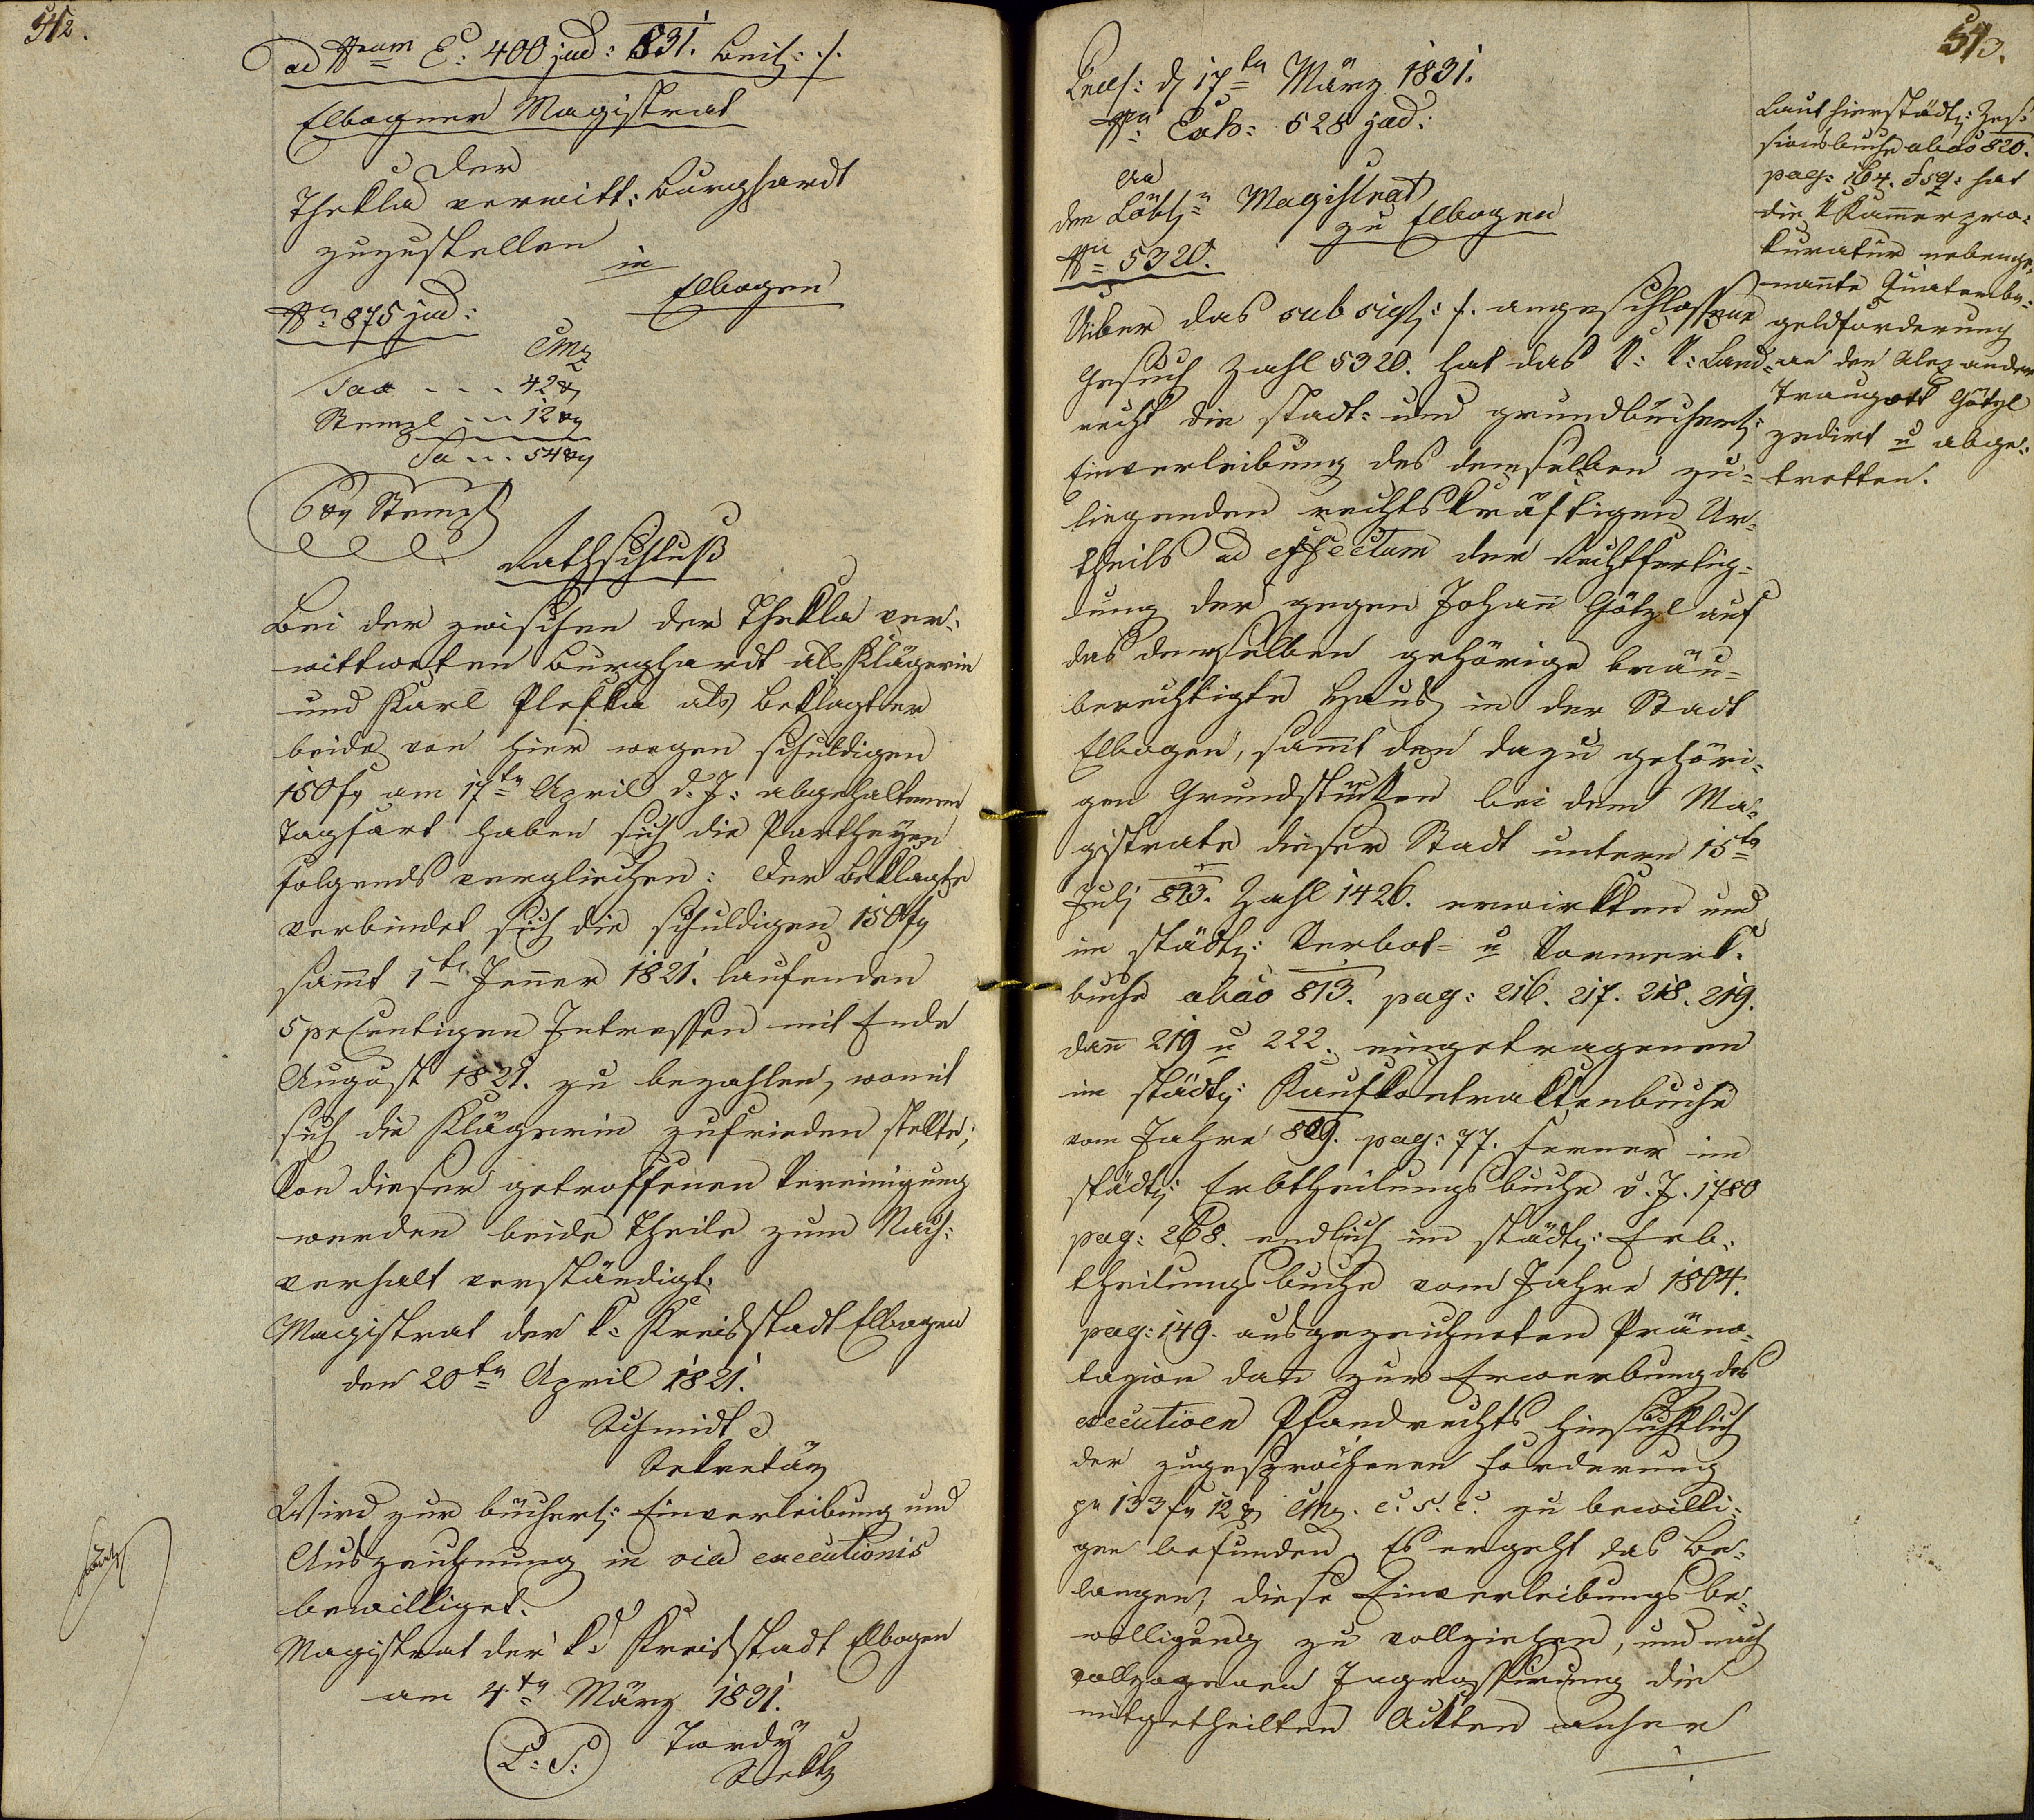 542.
ad Nrum E: 400 jud: 831. Beil: ./.
Elbogner Magistrat
der
Thekla verwitt: Burghardt
zuzustellen
in
Elbogen
Nro 875 jud:
CMz
Tax - - - 42 xr
Stempl - - 12 xr
Sa - - 54 xr
6 xr Stempl
Rathschluß
Bei der zwischen der Thekla ver-
wittweten Burghardt als Klägerin
und Karl Plefka als Beklagter
beide von hier wegen schuldigen
150 fr am 17ten April d. J: abgehaltenen
Tagfart haben sich die Partheyen
folgends verglichen: Der Beklagte
verbindet sich die schuldigen 150 fr
samt 1ten Jenner 1821. laufenden
5 percentigen Intressen mit Ende
August 1821. zu bezahlen, womit
sich die Klägerin zufrieden stellte;
Von dieser getroffenen Vereinigung
werden beide Theile zum Nach-
verhalt verständigt.
Magistrat der k: Kreisstadt Elbogen
den 20ten April 1821.
Schmidt
Sekretär
Wird zur bücherl: Einverleibung und
Auszeichnung in via executionis
bewilliget.
Magistrat der k: Kreisstadt Elbogen
am 4ten März 1831.
L: S: Tordy
Sekt
543.
Präs: d 17ten März 1831.
Nro Exh: 528 jud:
An
den Löbln Magistrat
zu Elbogen
Nro 5320.
Uiber das sub sigl: ./. angeschlossene
Gesuch Zahl 5320. hat das k: k: Land-
recht die stadt- und grundbücherl:
Einverleibung des demselben zu-
liegenden rechtskräftigen Ur-
theils ad effectum der Rechtfertig-
ung der gegen Johann Götzl auf
das demselben gehörige bräu-
berechtigte Haus in der Stadt
Elbogen, samt den dazu gehöri-
gen Grundstücken bei dem Ma-
gistrate dieser Stadt unterm 15ten
Juli 823. Zahl 1426. erwirkten und
im städt: Verbot- u Vormerk-
buche abao 813. pag: 216. 217. 218. 219.
dann 219 u 222. eingetragenen
im städt: Kaufkontraktenbuche
vom Jahre 809. pag: 77. ferner im
städt: Erbtheilungsbuche v. J. 1780
pag: 268. endlich im städt: Erb-
theilungsbuche vom Jahre 1804.
pag: 149. ausgezeichneten Präno-
tazion dan zur Erwerbung des
executiven Pfandrechts hinsichtlich
der zugesprochenen Forderung
pr 133 fr 12 xr CMz. c. s. c. zu bewilli-
gen befunden. Es ergeht das Be-
langen, diese Einverleibungsbe-
willigung zu vollziehen, und nach
vollzogenen Ingrossirung die
mitgetheilten Ackten anher
Laut hierstädt: Zes-
sionsbuche abao 820.
pag: 164. & sq: hat
die k Kammerpro-
kuratur nebenge-
nannte Quatember-
geldforderung
an den Alexander
Traugott Götzl
zedirt u abge-
tretten.